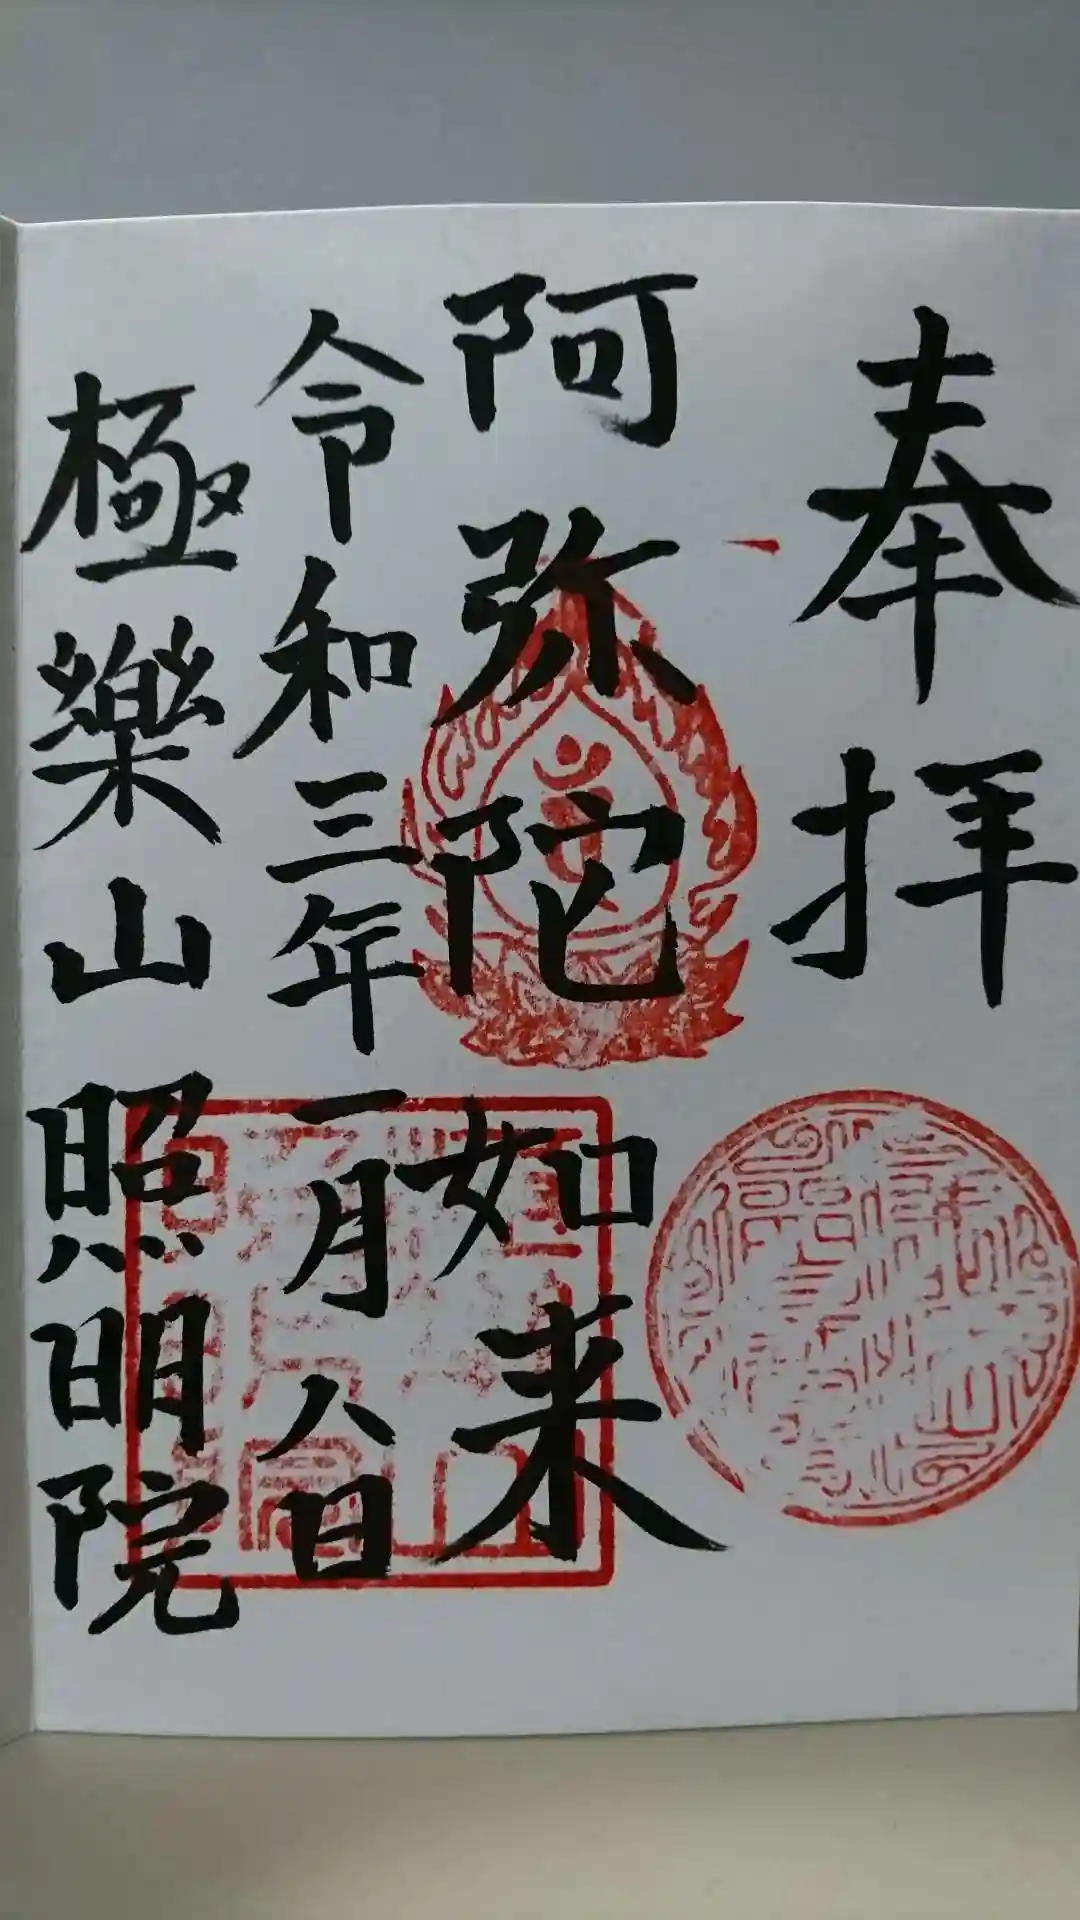 奉拝
阿弥陀如来
令和三年一月八日
極樂山照明院